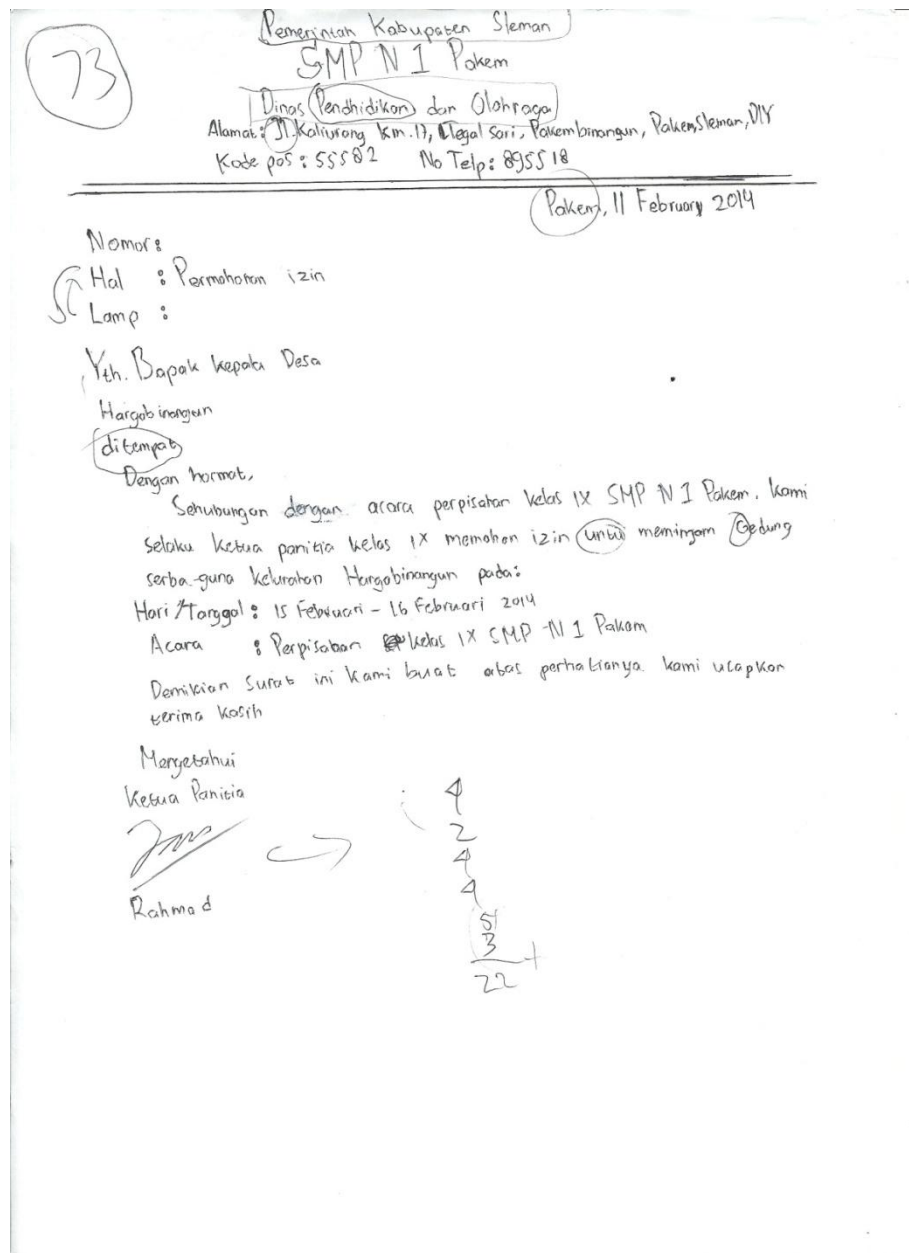 73
Pemerintah Kabupaten Sleman
SMP N 1 Pakem
Dinas Pendhidikan dan Olahraga
Alamat: Jl. Kaliurang km.17, Tegal Sari, Pakembinangun, Pakem, Sleman, DIY
Kode pos: 55582 No Telp: 895518
Pakem, 11 February 2014
Nomor:
Hal : Permohonan izin
Lamp :
Yth. Bapak kepala Desa
Hargobinangun
ditempat
Dengan hormat,
Sehubungan dengan acara perpisahan kelas IX SMP N 1 Pakem. kami
selaku ketua panitia kelas IX memohon izin untuk meminjam Gedung
serba-guna kelurahan Hargobinangun pada:
Hari/Tanggal: 15 Februari - 16 Februari 2014
Acara : Perpisahan kelas IX SMP N 1 Pakem
Demikian Surat ini kami buat atas perhatianya kami ucapkan
terima kasih
Mengetahui
Ketua Panitia
Rahmad
4
2
4
4
5
3
+
22